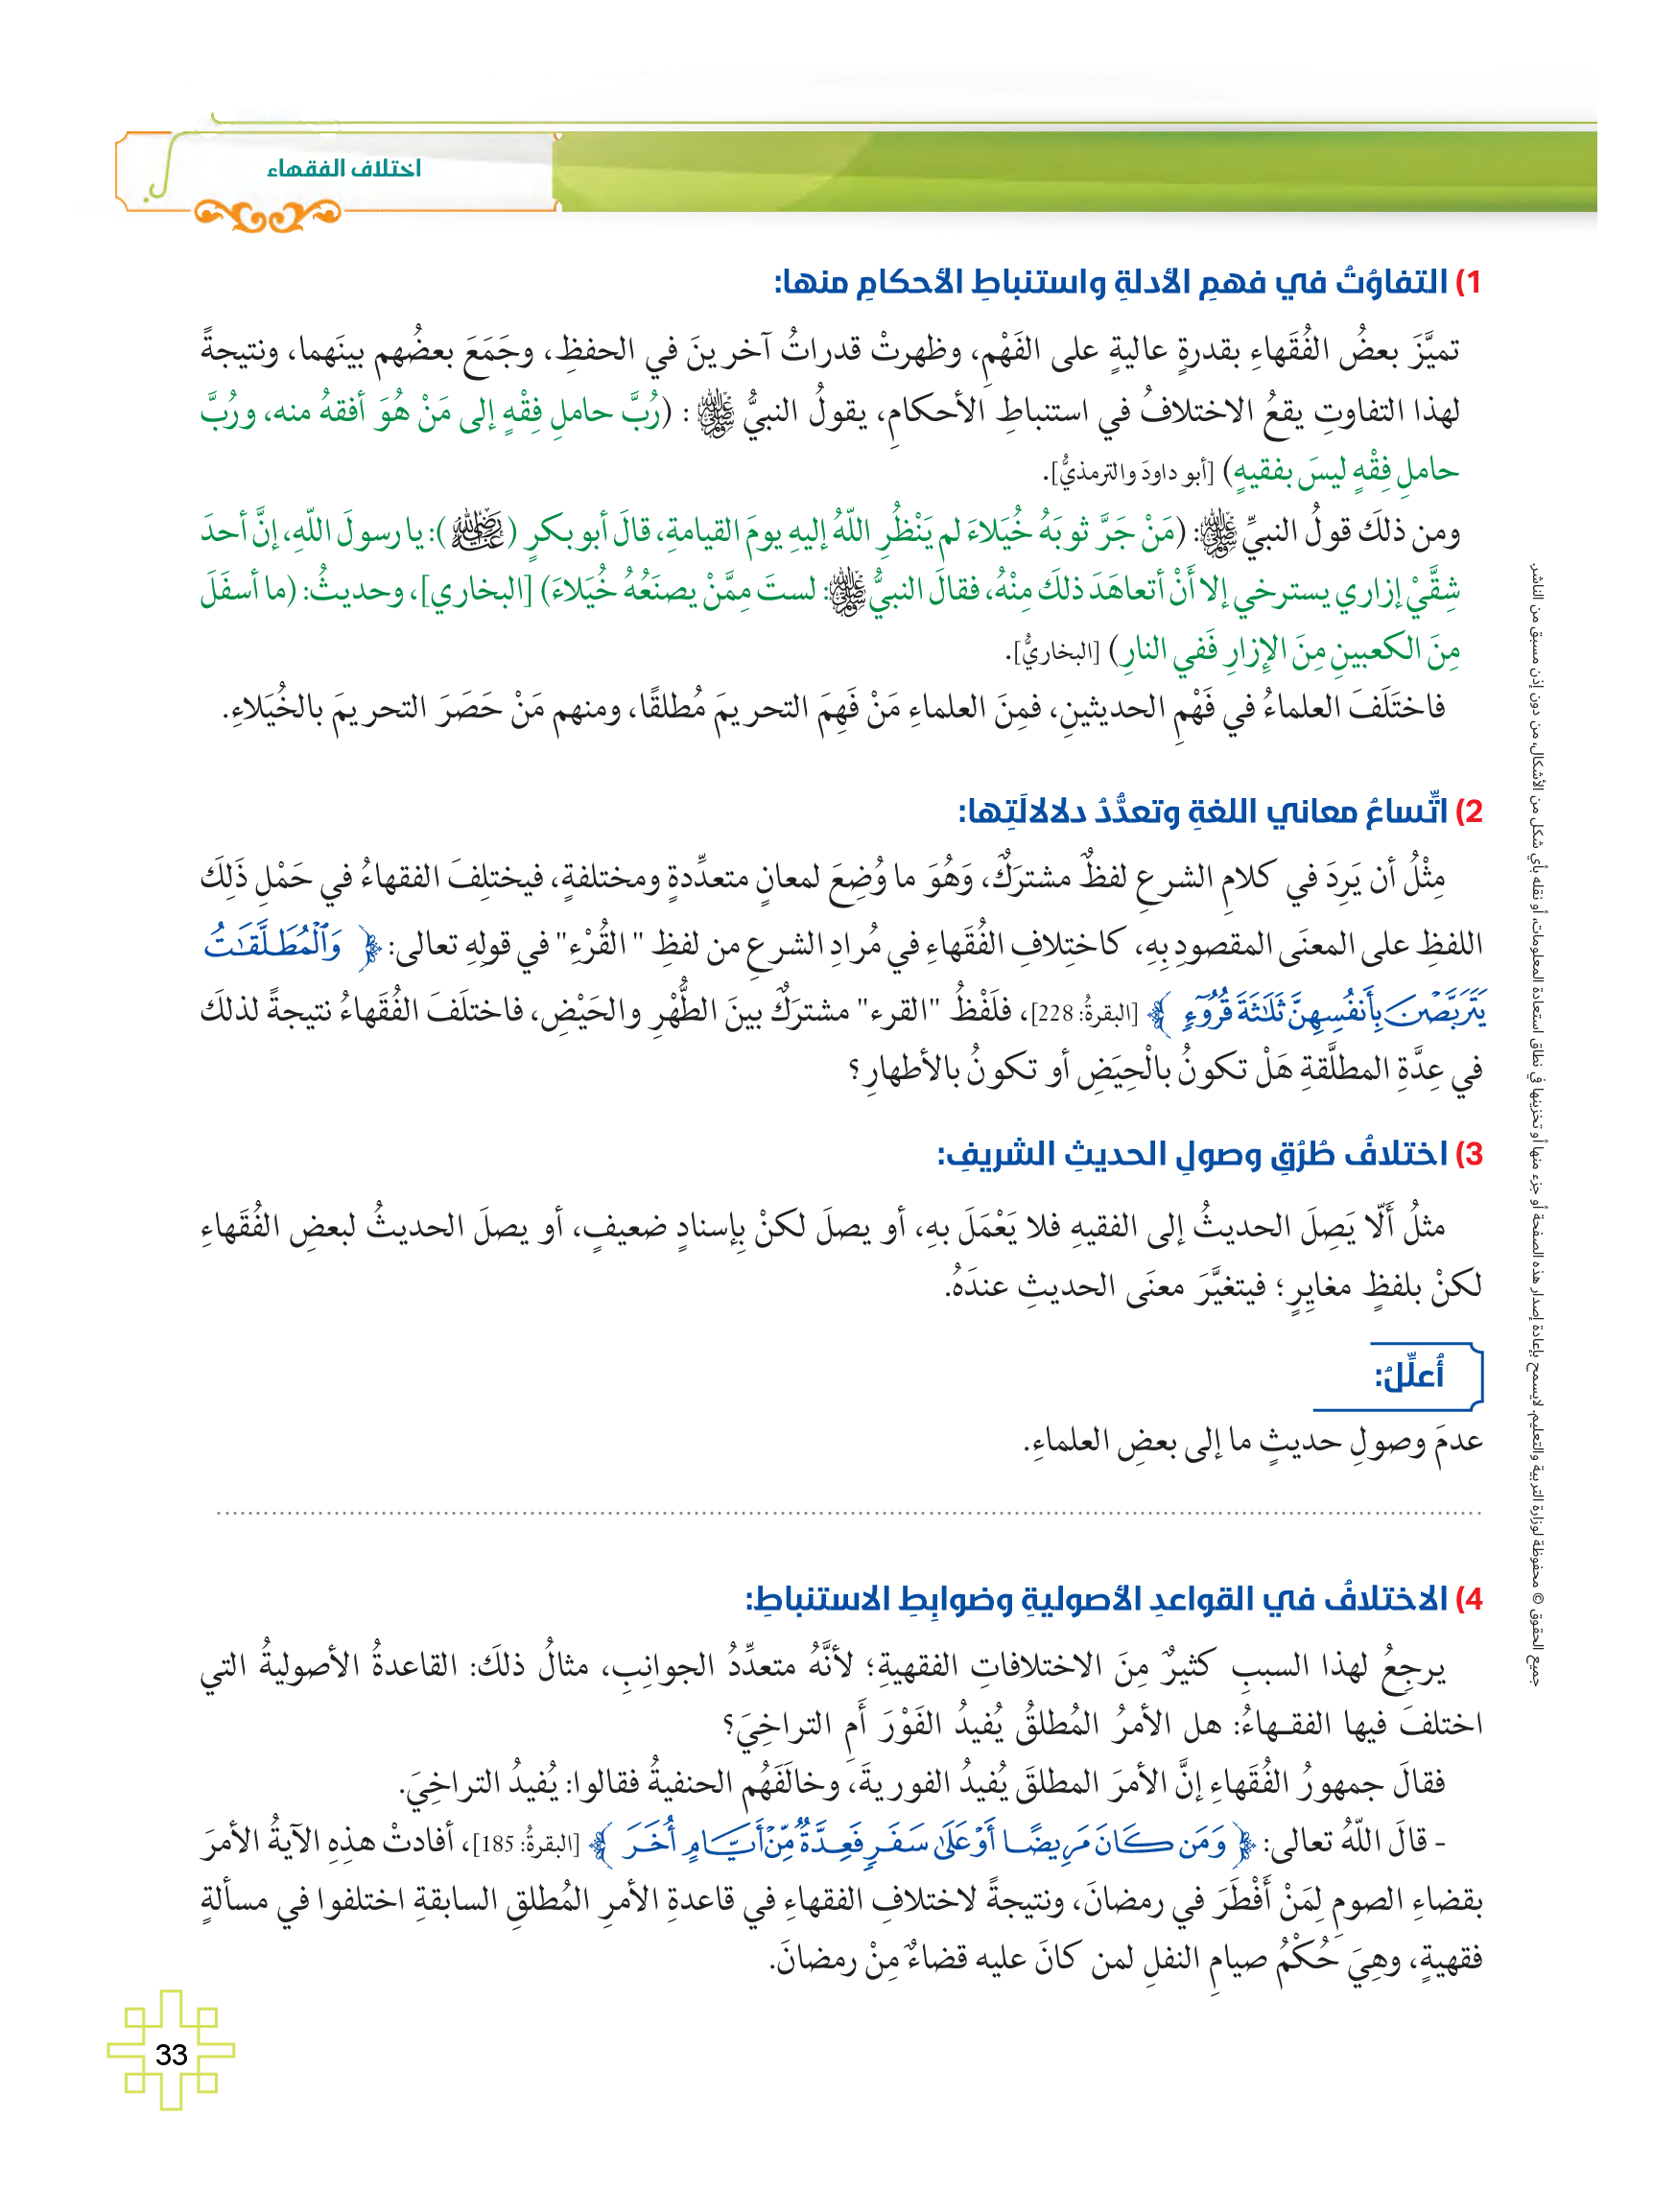 اختلاف الفقهاء
1) التفاوُتُ في فهمِ الأدلةِ واستنباطِ الأحكامِ منها:
تميَّزَ بعضُ الفُقَهاءِ بقدرةٍ عاليةٍ على الفَهْمِ، وظهرتْ قدراتُ آخرينَ في الحفظِ، وجَمَعَ بعضُهم بينَهما، ونتيجةً
لهذا التفاوتِ يقعُ الاختلافُ في استنباطِ الأحكامِ، يقولُ النبيُّ ﷺ : (رُبَّ حاملِ فِقْهٍ إلى مَنْ هُوَ أفقهُ منه، ورُبَّ
حاملِ فِقْهٍ ليسَ بفقيهٍ) [أبو داودَ والترمذيُّ].
ومن ذلكَ قولُ النبيِّ ﷺ: (مَنْ جَرَّ ثوبَهُ خُيَلاءَ لم يَنْظُرِ اللّهُ إليهِ يومَ القيامةِ، قالَ أبو بكرٍ (رضي الله عنه): يا رسولَ اللّهِ، إنَّ أحدَ
شِقَّيْ إزاري يسترخي إلا أَنْ أتعاهَدَ ذلكَ مِنْهُ، فقالَ النبيُّ ﷺ: لستَ مِمَّنْ يصنَعُهُ خُيَلاءَ) [البخاري]، وحديثُ: (ما أسفَلَ
مِنَ الكعبينِ مِنَ الإزارِ فَفي النارِ) [البخاريُّ].
فاختَلَفَ العلماءُ في فَهْمِ الحديثينِ، فمِنَ العلماءِ مَنْ فَهِمَ التحريمَ مُطلقًا، ومنهم مَنْ حَصَرَ التحريمَ بالخُيَلاءِ.
2) اتِّساعُ معاني اللغةِ وتعدُّدُ دلالالَتِها:
مِثْلُ أن يَرِدَ في كلامِ الشرعِ لفظٌ مشترَكٌ، وَهُوَ ما وُضِعَ لمعانٍ متعدِّدةٍ ومختلفةٍ، فيختلِفَ الفقهاءُ في حَمْلِ ذَلِكَ
اللفظِ على المعنَى المقصودِ بِهِ، كاختِلافِ الفُقَهاءِ في مُرادِ الشرعِ من لفظِ " القُرْءِ" في قولِهِ تعالى: ﴿ وَٱلْمُطَلَّقَٰتُ
يَتَرَبَّصْنَ بِأَنفُسِهِنَّ ثَلَٰثَةَ قُرُوٓءٍ ﴾ [البقرةُ: 228]، فلَفْظُ "القرء" مشترَكٌ بينَ الطُّهْرِ والحَيْضِ، فاختلَفَ الفُقَهاءُ نتيجةً لذلكَ
في عِدَّةِ المطلَّقةِ هَلْ تكونُ بالْحِيَضِ أو تكونُ بالأطهارِ؟
3) اختلافُ طُرُقِ وصولِ الحديثِ الشريفِ:
مثلُ أَلّا يَصِلَ الحديثُ إلى الفقيهِ فلا يَعْمَلَ بهِ، أو يصلَ لكنْ بِإسنادٍ ضعيفٍ، أو يصلَ الحديثُ لبعضِ الفُقَهاءِ
لكنْ بلفظٍ مغايِرٍ؛ فيتغيَّرَ معنَى الحديثِ عندَهُ.
أُعلِّلُ:
عدمَ وصولِ حديثٍ ما إلى بعضِ العلماءِ.
4) الاختلافُ في القواعدِ الأصوليةِ وضوابِطِ الاستنباطِ:
يرجِعُ لهذا السببِ كثيرٌ مِنَ الاختلافاتِ الفقهيةِ؛ لأنَّهُ متعدِّدُ الجوانِبِ، مثالُ ذلكَ: القاعدةُ الأصوليةُ التي
اختلفَ فيها الفقـهاءُ: هل الأمرُ المُطلقُ يُفيدُ الفَوْرَ أَمِ التراخِيَ؟
فقالَ جمهورُ الفُقَهاءِ إنَّ الأمرَ المطلقَ يُفيدُ الفوريةَ، وخالَفَهُم الحنفيةُ فقالوا: يُفيدُ التراخِيَ.
- قالَ اللّهُ تعالى: ﴿ وَمَن كَانَ مَرِيضًا أَوْ عَلَىٰ سَفَرٍ فَعِدَّةٌ مِّنْ أَيَّامٍ أُخَرَ ﴾ [البقرةُ: 185]، أفادتْ هذِهِ الآيةُ الأمرَ
بقضاءِ الصومِ لِمَنْ أَفْطَرَ في رمضانَ، ونتيجةً لاختلافِ الفقهاءِ في قاعدةِ الأمرِ المُطلقِ السابقةِ اختلفوا في مسألةٍ
فقهيةٍ، وهِيَ حُكْمُ صيامِ النفلِ لمن كانَ عليه قضاءٌ مِنْ رمضانَ.
33
جميع الحقوق © محفوظة لوزارة التربية والتعليم. لايسمح بإعادة إصدار هذه الصفحة أو جزء منها أو تخزينها في نطاق استعادة المعلومات، أو نقله بأي شكل من الأشكال، من دون إذن مسبق من الناشر.